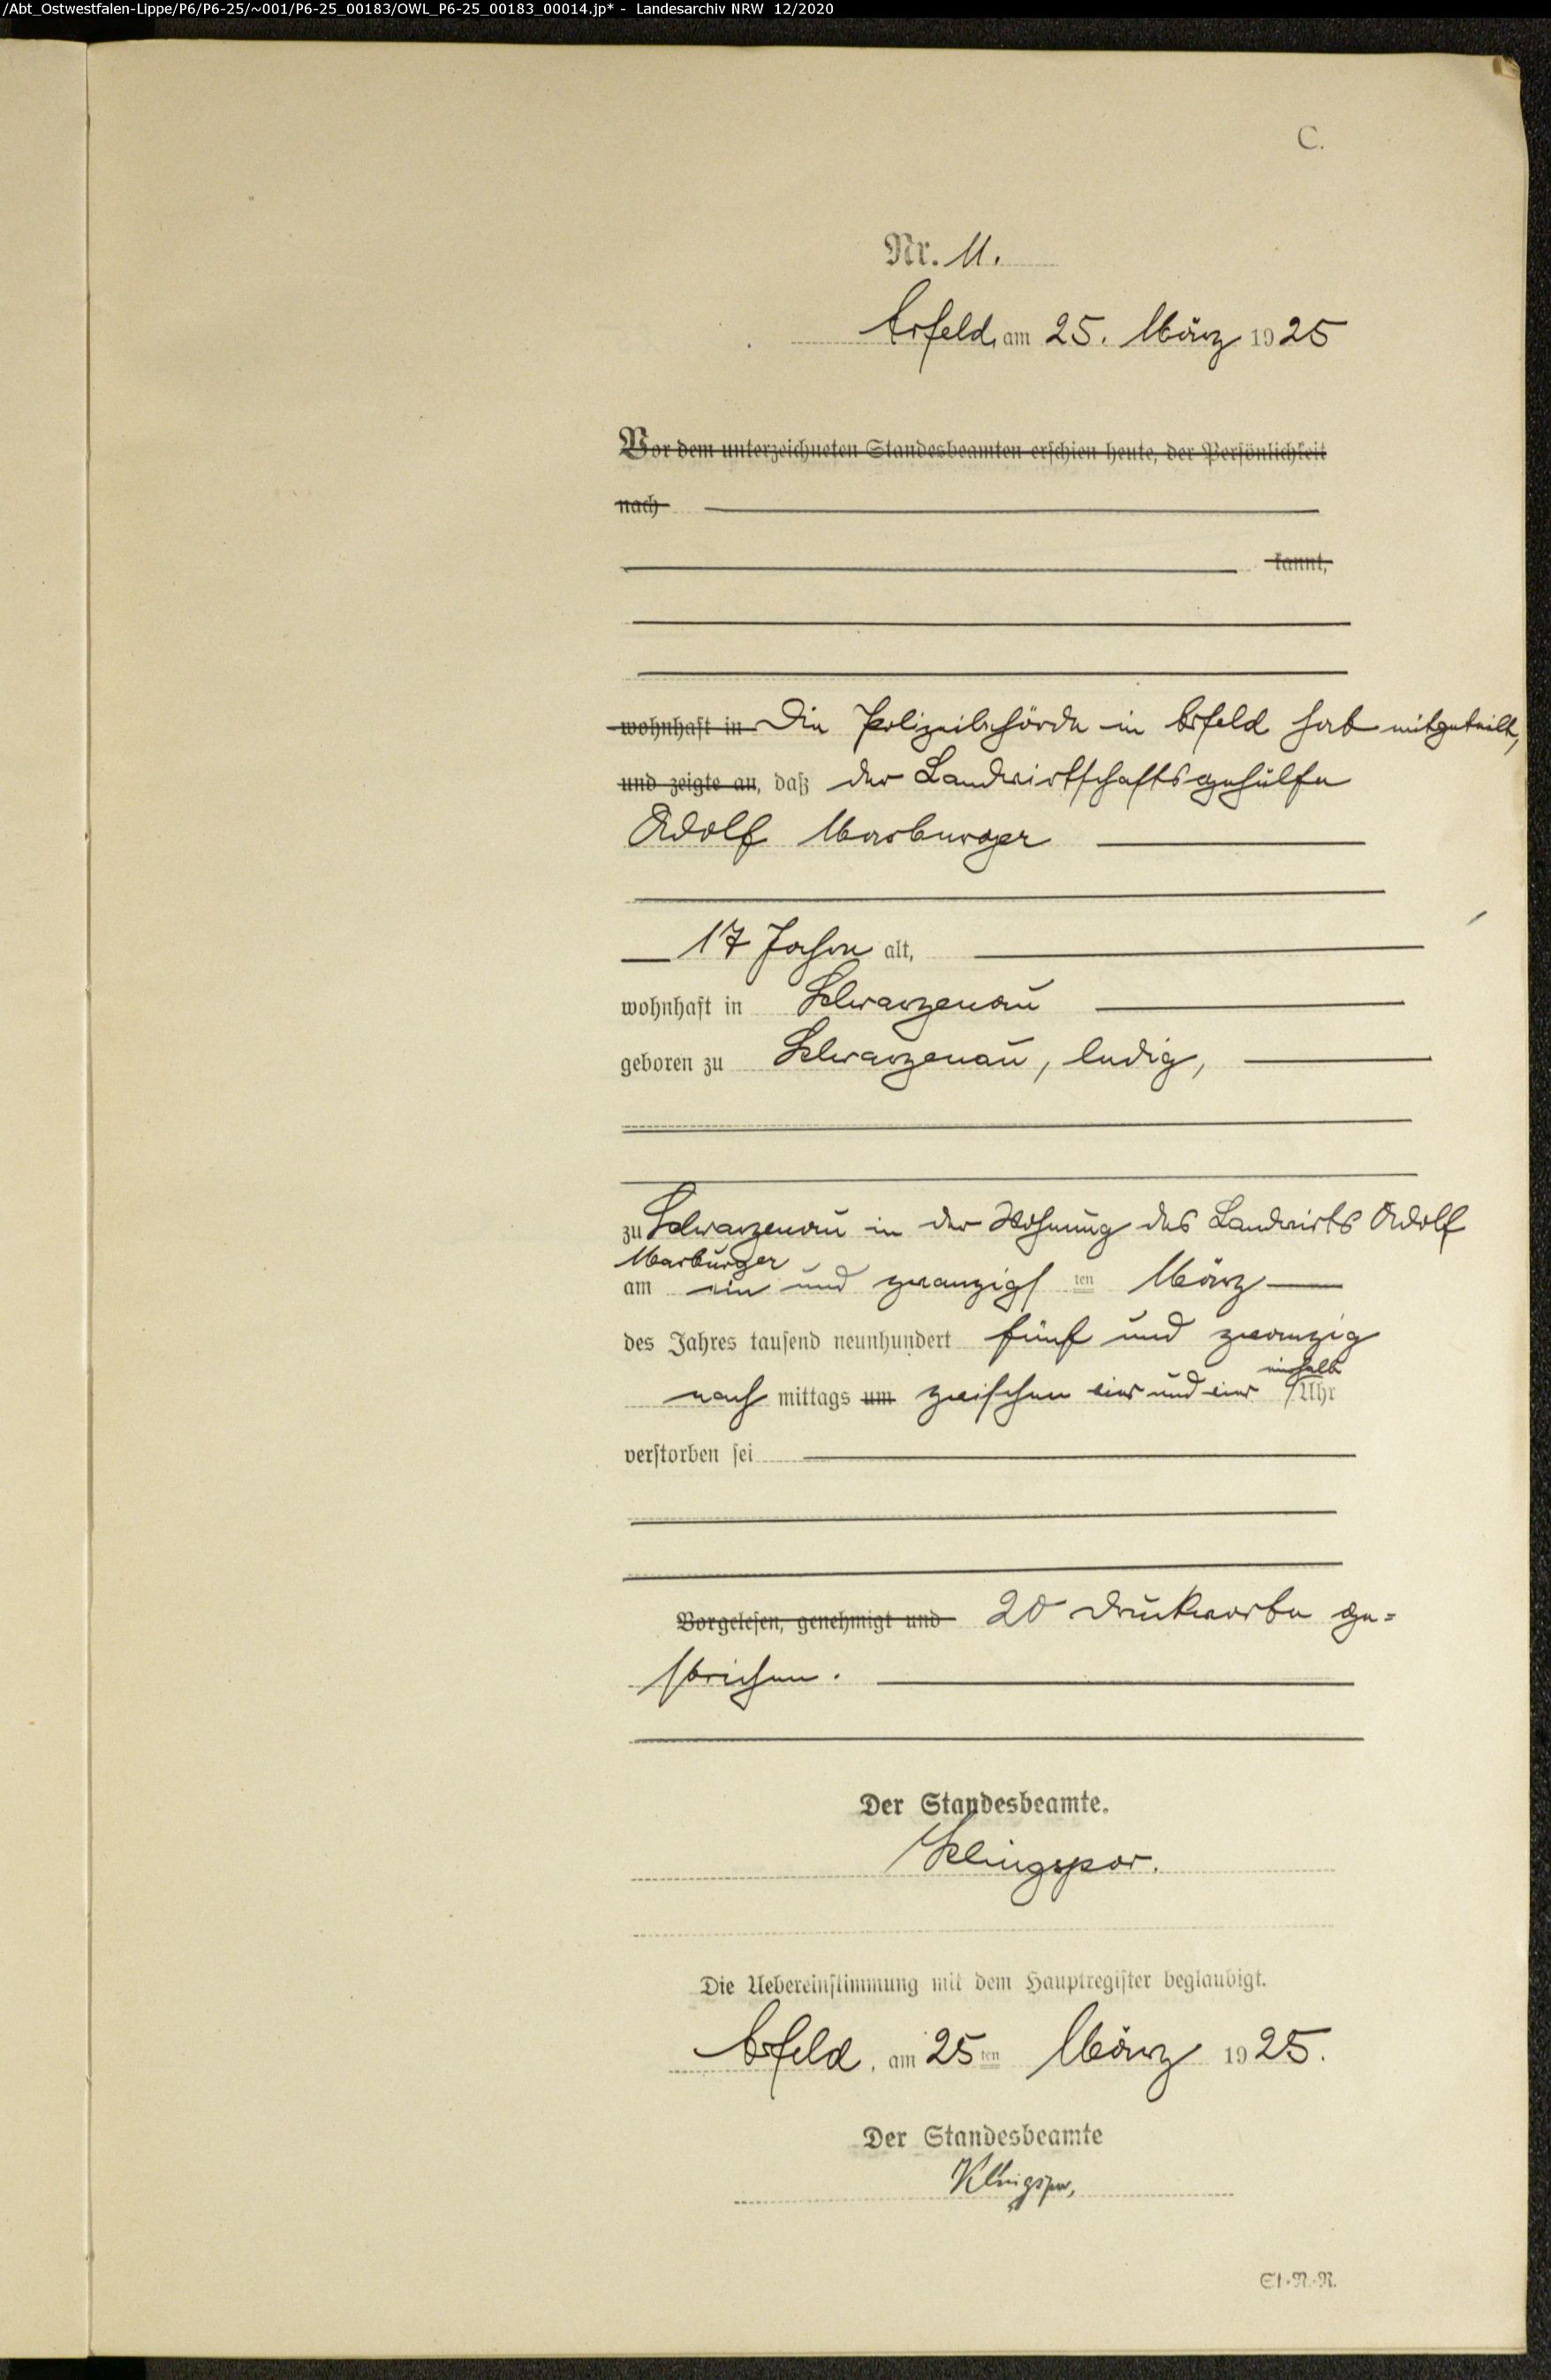 /Abt_Ostwestfalen-Lippe/P6/P6-25/~001/P6-25_00183/OWL_P6-25_00183_00014.jp* - Landesarchiv NRW 12/2020
C.
Nr. 11.
Arfeld, am 25. März 1925
Vor dem unterzeichneten Standesbeamten erschien heute, der Persönlichkeit
nach
kannt,
wohnhaft in Die Polizeibehörde in Arfeld hat mitgeteilt,
und zeigte an, daß der Landwirtschaftsgehülfe
Adolf Marburger
17 Jahre alt,
wohnhaft in Schwarzenau
geboren zu Schwarzenau, ledig,
zu Schwarzenau in der Wohnung des Landwirts Adolf
Marburger
am ein und zwanzigsten März
des Jahres tausend neunhundert fünf und zwanzig
nach mittags um zwischen ein und ein einhalb Uhr
verstorben sei
Vorgelesen, genehmigt und 20 Druckworte ge-
strichen.
Der Standesbeamte.
Klingspor.
Die Uebereinstimmung mit dem Hauptregister beglaubigt.
Arfeld, am 25ten März 1925.
Der Standesbeamte
Klingspor,